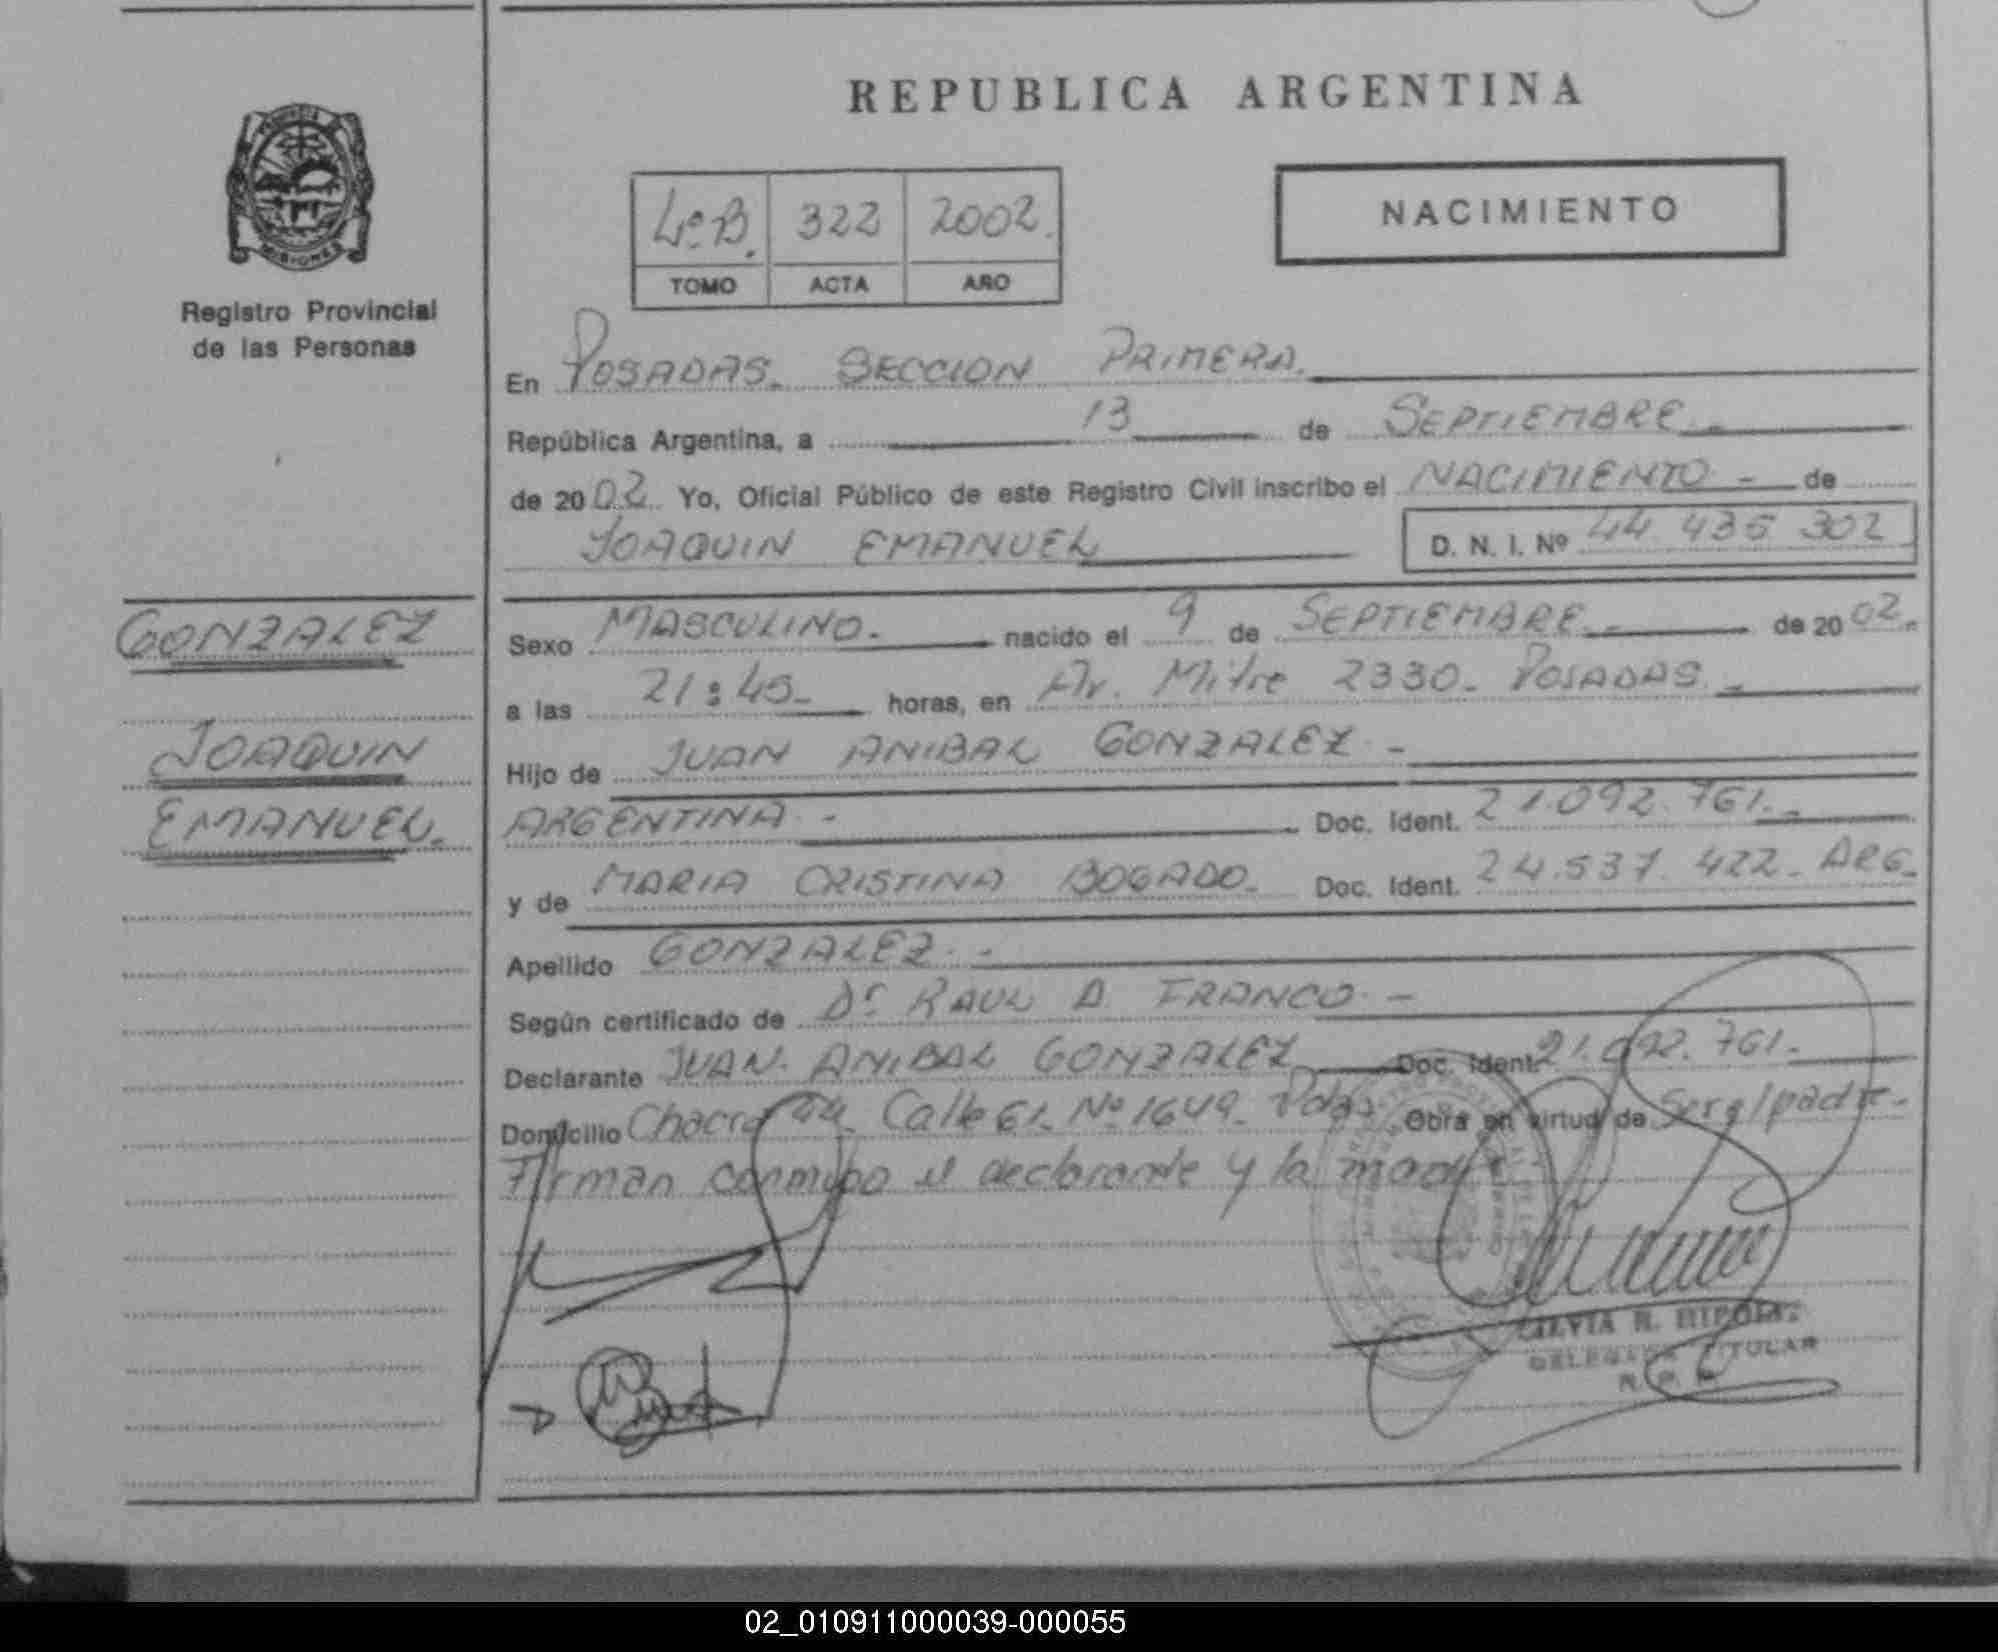 REPUBLICA ARGENTINA
NACIMIENTO
4º B. 322 2002.
TOMO ACTA AÑO
Registro Provincial
de las Personas
En POSADAS. SECCION PRIMERA.
República Argentina, a 13 de SEPTIEMBRE.-
de 2002. Yo, Oficial Público de este Registro Civil inscribo el NACIMIENTO - de
JOAQUIN EMANUEL D. N. I. Nº 44 435 302
GONZALEZ
JOAQUIN
EMANUEL.
Sexo MASCULINO.- nacido el 9 de SEPTIEMBRE.- de 2002.
a las 21:45.- horas, en Av. Mitre 2330. POSADAS.-
Hijo de JUAN ANIBAL GONZALEZ.-
ARGENTINA.- Doc. Ident. 21.092.761.-
y de MARIA CRISTINA BOGADO. Doc. Ident. 24.537.422. ARG.
Apellido GONZALEZ.-
Según certificado de Dr RAUL A. FRANCO.-
Declarante JUAN ANIBAL GONZALEZ Doc. Ident. 21.092.761.-
Domicilio Chacra 44. Calle 61. Nº 1649. Pdas Obra en virtud de Ser el padre.
Firman conmigo el declarante y la madre
SILVIA R.
DELEGADA TITULAR
02_010911000039-000055